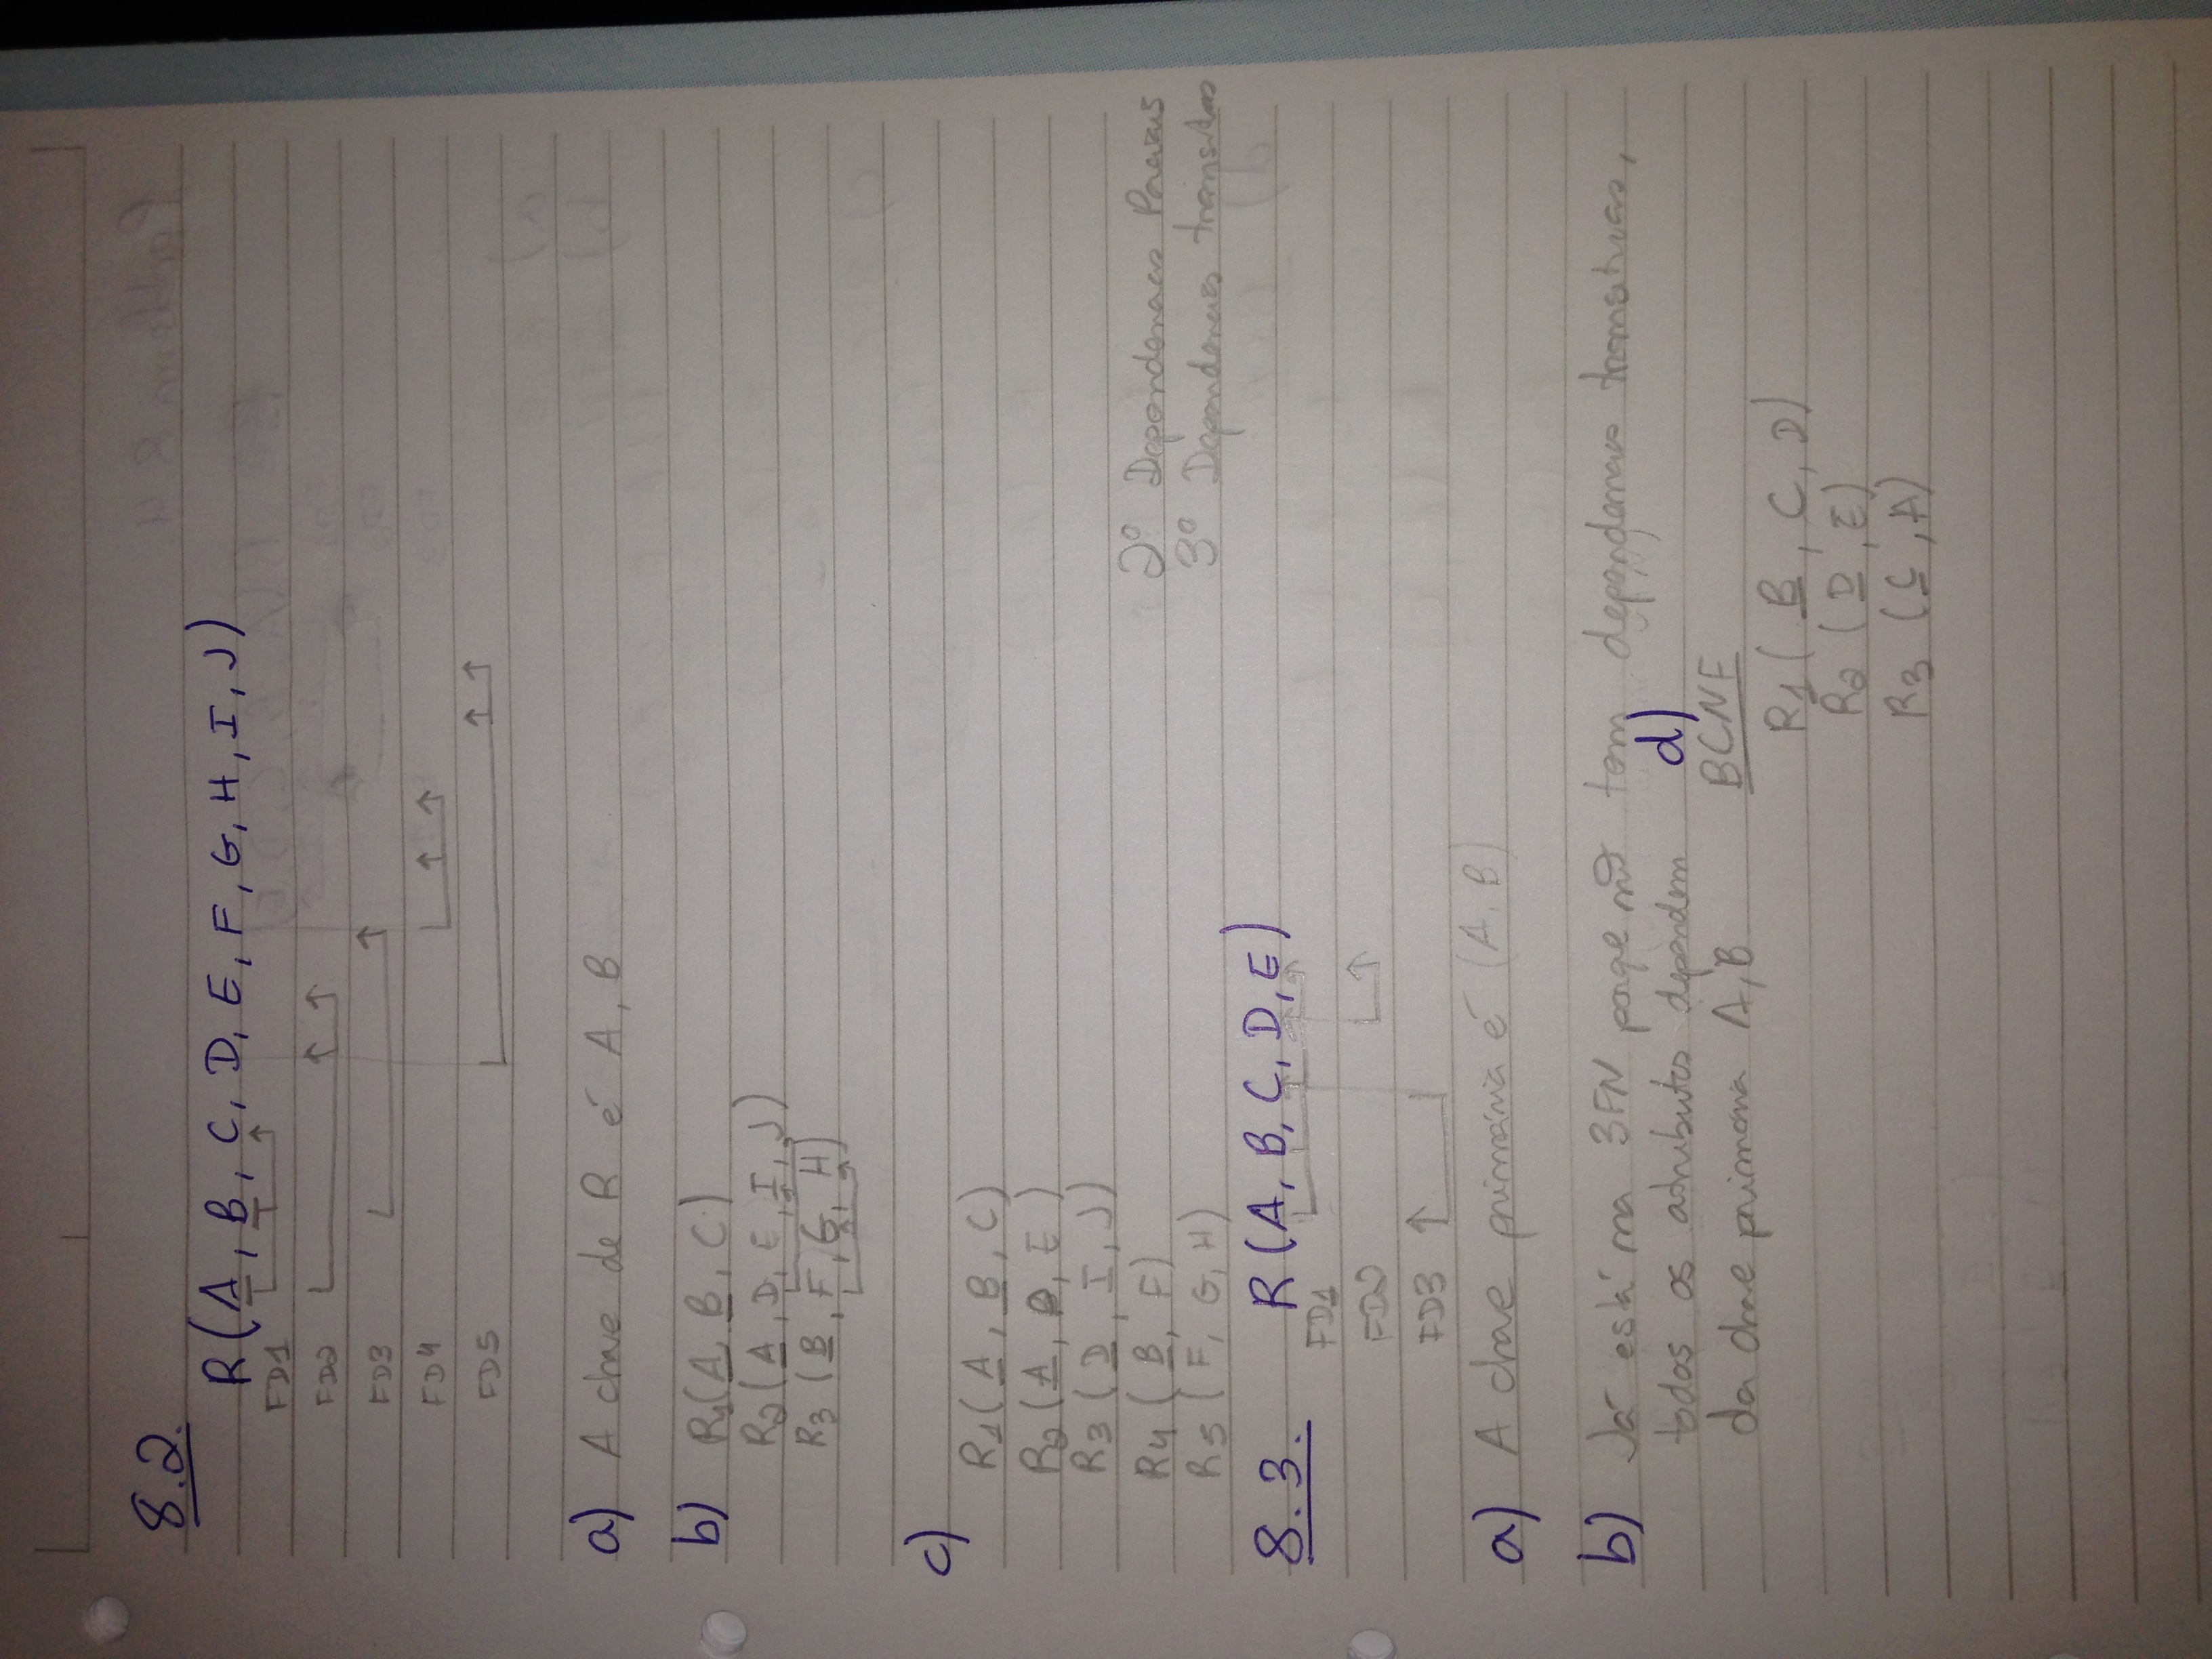 8.2.
R(A, B, C, D, E, F, G, H, I, J)
FD1
FD2
FD3
FD4
FD5
a) A chave de R é A, B
b) R1(A, B, C)
R2(A, D, E, I, J)
R3(B, F, G, H)
c)
R1(A, B, C)
R2(A, D, E)
R3(D, I, J)
R4(B, F)
R5(F, G, H)
2º Dependencias Parciais
3º Dependencias transitivas
8.3. R(A, B, C, D, E)
FD1
FD2
FD3
a) A chave primária é (A, B)
b) Já está na 3FN porqe não tem dependencias transitivas,
todos os atributos dependem
da chave primária A, B
d)
BCNF
R1(B, C, D)
R2(D, E)
R3(C, A)